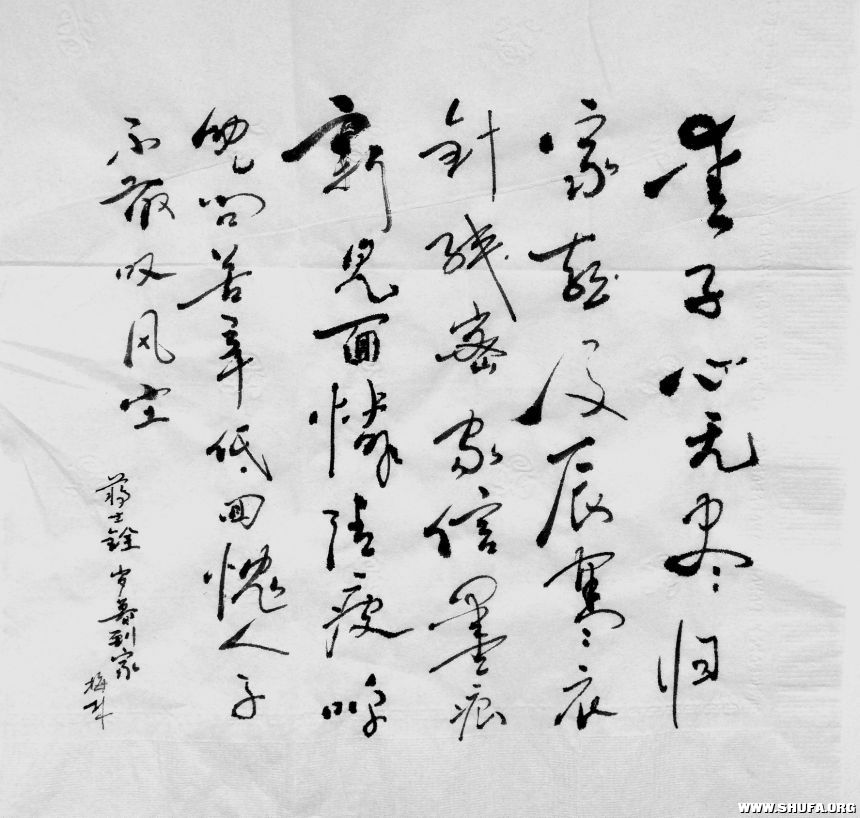 爱子心无尽归
家喜及辰寒衣
針线密家信墨痕
新見面憐清瘦呼
兒问苦辛低回愧人子
不敢叹风尘
蒋士銓 岁暮到家